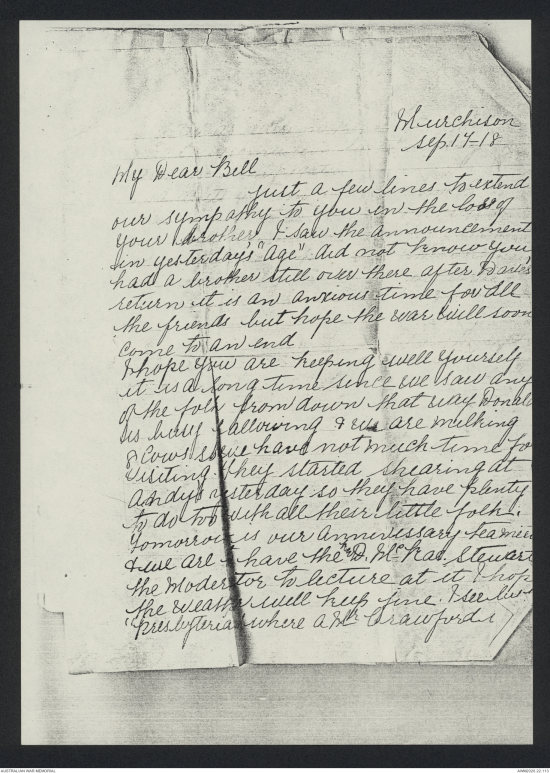 Murchison
Sep. 17-18
My Dear Bell
Just a few lines to extend
our sympathy to you in the loss of
your brother, I saw the announcement
in yesterday's "Age" did not know you
had a brother still over there after Dave's
return it is an anxious time for all
the friends but hope the war will soon
come to an end
I hope you are keeping well yourself
it is a long time since we saw any
of the folk from down that way Donald
is busy fallowing & we are milking
8 cows so we have not much time for
visiting they started shearing at
Andy's yesterday so they have plenty
to do too with all their little folk.
Tomorrow is our anniversary tea
& we are have the D. McRae Stewart
the Moderator to lecture at it I hope
the weather will keep fine. I see
"Presbyterian where a Mr Crawford
AUSTRALIAN WAR MEMORIAL